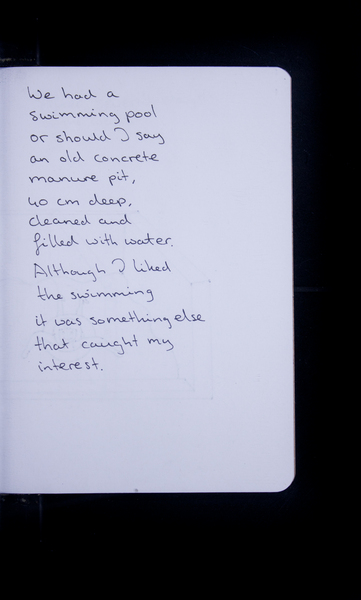 We had a
swimming pool
or should I say
an old concrete
manure pit,
40 cm deep,
cleaned and
filled with water.
Although I liked
the swimming
it was something else
that caught my
interest.